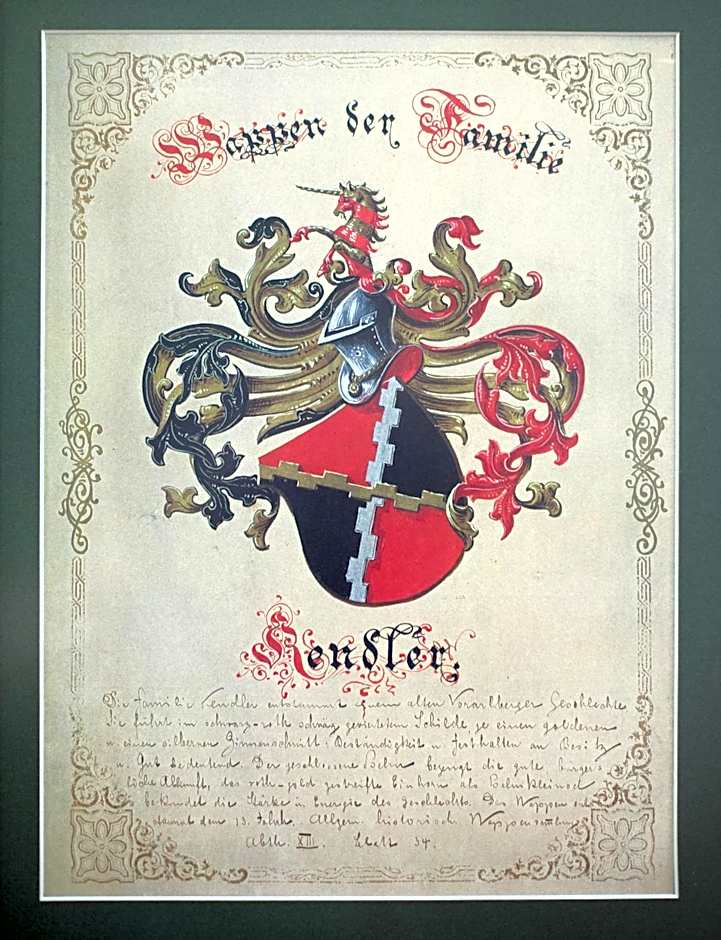 Wappen der Familie
Kendler.
Die Familie Kendler entstammt einem alten Vorarlberger Geschlechte
Sie führt im schwarz-roth schräg geviertetem Schilde je einen goldenen
u. einen silbernen Zinnenschnitt: Beständigkeit u. Festhalten an Besitz
u. Gut bedeutend. Der geschlossene Helm bezeugt die gute bürger-
liche Abkunft, das roth-gold gestreifte Einhorn als Helmkleinod
bekundet die Stärke u. Energie des Geschlechts. Das Wappen ent-
stammt dem 15. Jahrh. Allgem. historisch. Wappensammlung
Abth. XIII. Blatt 34.